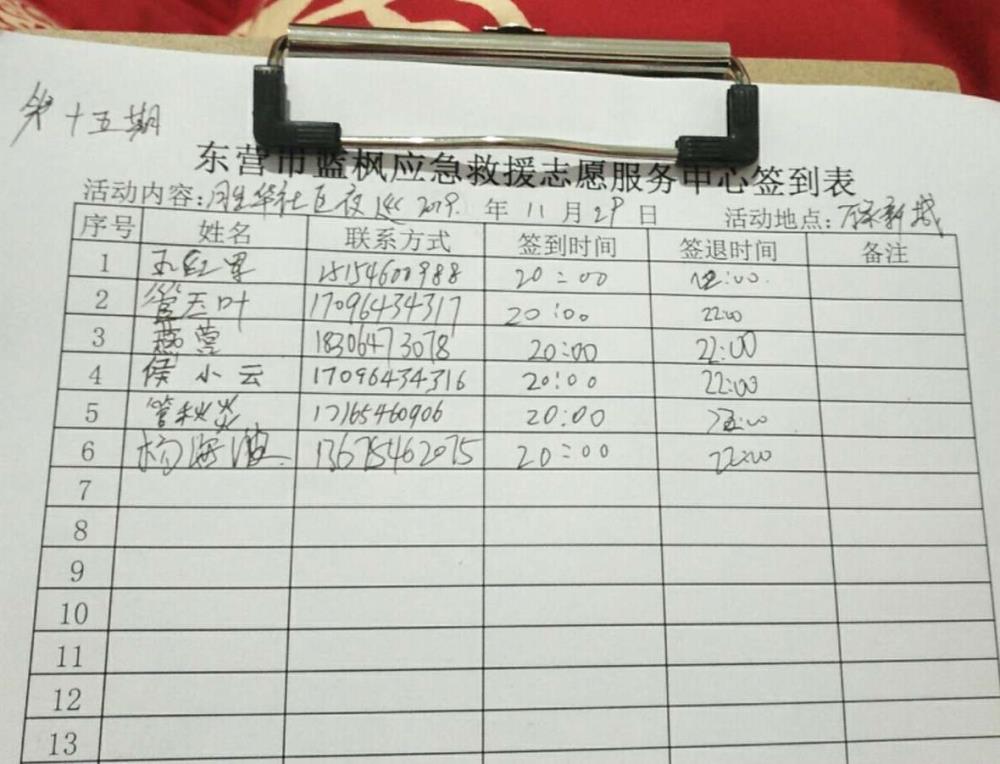 第十五期
东营市蓝枫应急救援志愿服务中心签到表
活动内容: 社区夜巡 2019. 年 11 月 29 日 活动地点: 新城
序号 姓名 联系方式 签到时间 签退时间 备注
1 15154600988 20:00 22:00
2 管玉叶 17096434317 20:00 22:00
3 燕营 18306473078 20:00 22:00
4 侯小云 17096434316 20:00 22:00
5 管秋炎 17165460906 20:00 22:00
6 杨海波 13675462075 20:00 22:00
7
8
9
10
11
12
13